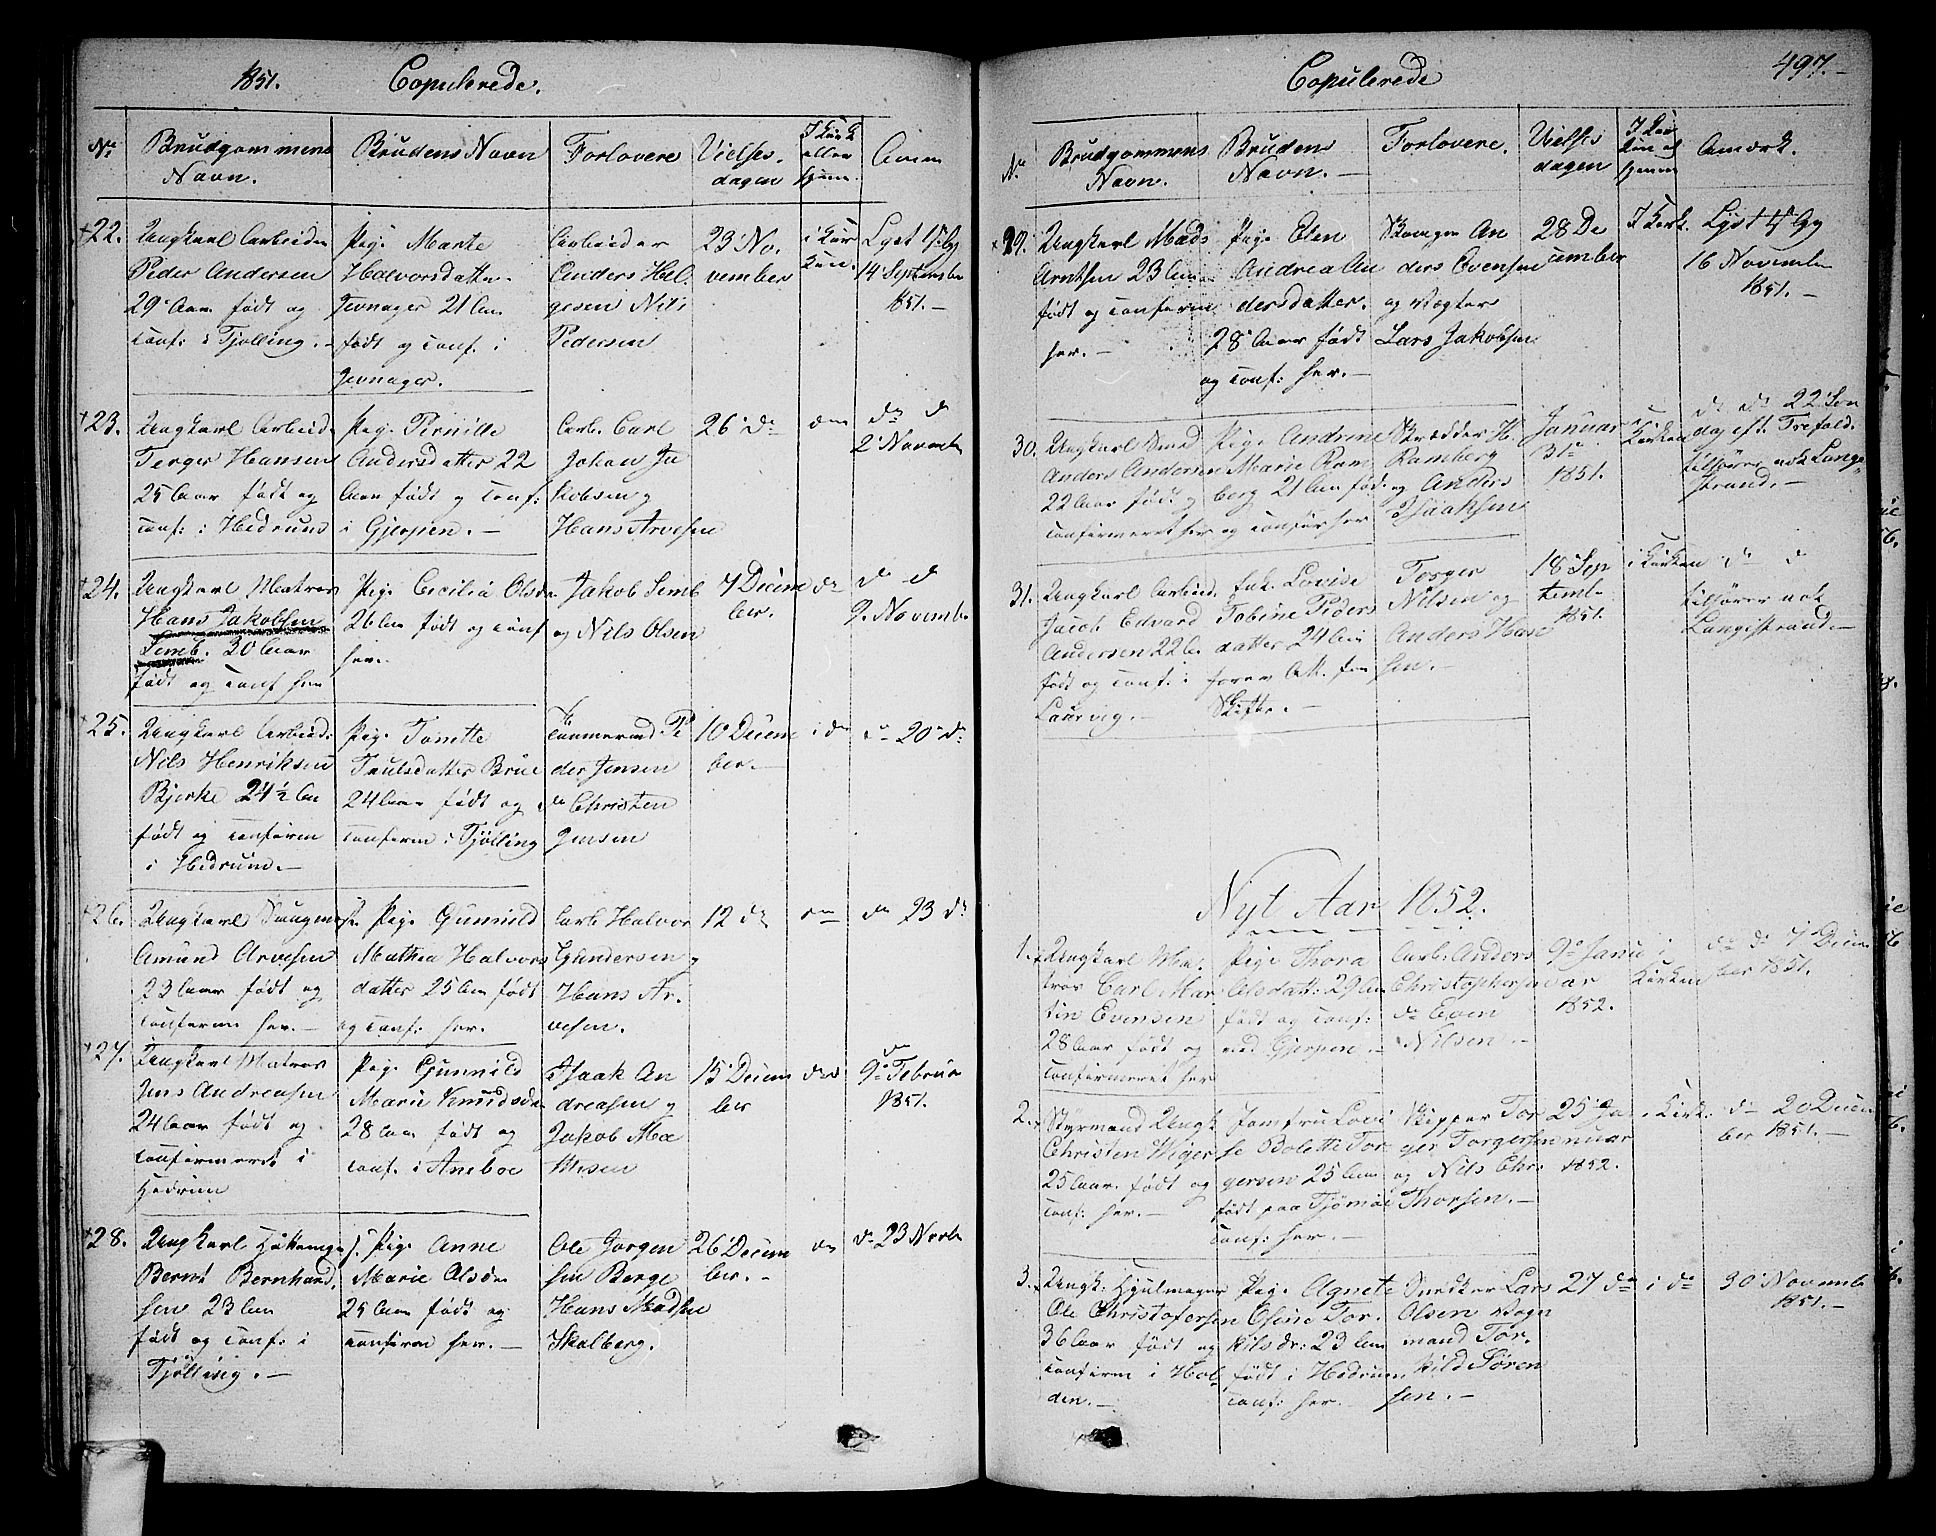 1851. Copulerede.
No
Brudgommens
Navn.
Brudens Navn
Forlovere
Vielses
dagen
I Kirk
eller
hjem.
Anm
+22.
Ungkarl Arbeider
Peder Andersen
29 Aar født og
conf: i Tjølling.
Pige Marte
Halvorsdatter
Jevnager 21 Aar
født og conf. i
Jevnager.
Arbeider
Anders Hel
gesen Nils
Pedersen
23 No
vember
i Kir
ken.
Lyst 1ste G
14 September
1851.
+23.
Ungkarl Arbeid.
Terger Hansen
25 Aar født og
conf: i Hedrum
Pige Pernille
Andersdatter 22
Aar født og conf:
i Gjerpen.
Arb. Carl
Johan Ja
kobsen og
Hans Arvesen
26 do
do
do d
2 Novemb
+24.
Ungkarl Matros
Hans Jakobsen
Semb. 30 Aar
født og conf her
Pige Cecilia Olsdr
26 Aar født og conf
her.
Jakob Semb
og Nils Olsen
7 Decem
ber.
do
do d
9. Novemb.
+25.
Ungkarl Arbeid:
Nils Henriksen
Bjerke 24½ Aar
født og conferm
i Hedrum.
Pige Tomette
Truls​datter Brue
24 Aar født og
conferm i Tjølling
Tømmermd Pe
der Jensen
do Christen
Jensen
10 Decem
ber.
i do
do 20 do
+26.
Ungkarl
Amund Arvesen
23 Aar født og
conferm her.
Pige Gunnild
Mathea Halvors
datter 25 Aar født
og conf: her.
Arb Halvor
Gundersen og
Hans Ar.
vesen.
12 do
do
do 23 do
+27.
Ungkarl Matros
Jens Andreasen
24 Aar født og
confermeret i
Hedrum
Pige Gunnild
Marie Knudsdr
28 Aar født og
conf. i Aneboe
Isaak An
dreasen og
Jakob Ma
thisen
15 Decem
ber
do
do
9 Februar
1851.
+28.
Ungkarl
Bernt Bernhard
sen 23 Aar
født og conf: i
Tjølling.
Pige Anne
Marie Olsdr
25 Aar født og
conferm her.
Ole Jorgen
sen Berge
Hans Madsen
Skalberg.
26 Decem
ber.
do
do 23 Novb
Copulerede 497.
No
Brudgommens
Navn.
Brudens
Navn.
Forlovere.
Vielses
dagen
I Kir
ken el
hjemm
Anmærk.
29.
Ungkarl Mads
Arntsen 23 Aar
født og conferm
her.
Pige Elen
Andrea An
dersdatter.
28 Aar født
og conf: her.
An
ders Evensen
og Vægter
Lars Jakobsen
28 De
cember
I Kirk.
Lyst 1ste Gg
16 Novemb
1851.
30.
Ungkarl Smed
Anders Andersen
22 Aar født og
confermeret her
Pige Andrine
Marie Ram
berg 21 Aar fød.
og conf: her
Skrædder H.
Ramberg
og Anders
Isaaksen
Januar
31te
1851.
i
Kirken
do do 22 Søn
dag eft. Trefold.
tilføres nok Lange
strand.
31.
Ungkarl Arbeid.
Jacob Edvard
Andersen 22 A.
født og conf: i
Laurvig.
Enk. Lovise
Tobine Peders
datter 24 Aar
forev. Att. fra
Skifte.
Torger
Nilsen og
Anders Han
sen.
18 Sep
temb
1851.
i Kirken
do d
tilføres nok
Langestrand.
Nyt Aar 1852.
1.
Ungkarl Ma.
tros Carl Mar
tin Evensen
28 Aar født og
confermeret her
Pige Thora
Olsdatt: 29 Aar
født og conf:
ved Gjerpen.
Arb: Anders
Christophersen
do Even
Nilsen.
9 Janu
ar
1852.
i
Kirken
do do 7 Decem
ber 1851.
2.
Styrmand Ungk
Christen Wiger
25 Aar født og
conf: her.
Jomfru Lovi
se Bolette Tor
gersen 25 Aar
født paa Tjømøe
conf: her.
Skipper Tor
ger Torgersen
og Nils Chr.
Thorsen.
25 Ja
nuar
1852.
i Kirk:
do 20 Decem
ber 1851.
3.
Ungk: Hjulmager
Ole Christofersen
36 Aar født og
conferm i Hol
den.
Pige Agnete
Olsine Tor.
kilsdr: 23 Aar
født i Hedrum,
conf: her.
Snedker Lars
Olsen Vogn
mand Tor.
kild Sören
sen.
27 do
i do
30 Novemb
1851.